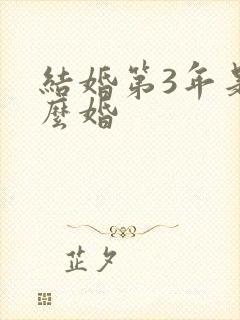 結婚第3年是
麼婚
芷夕